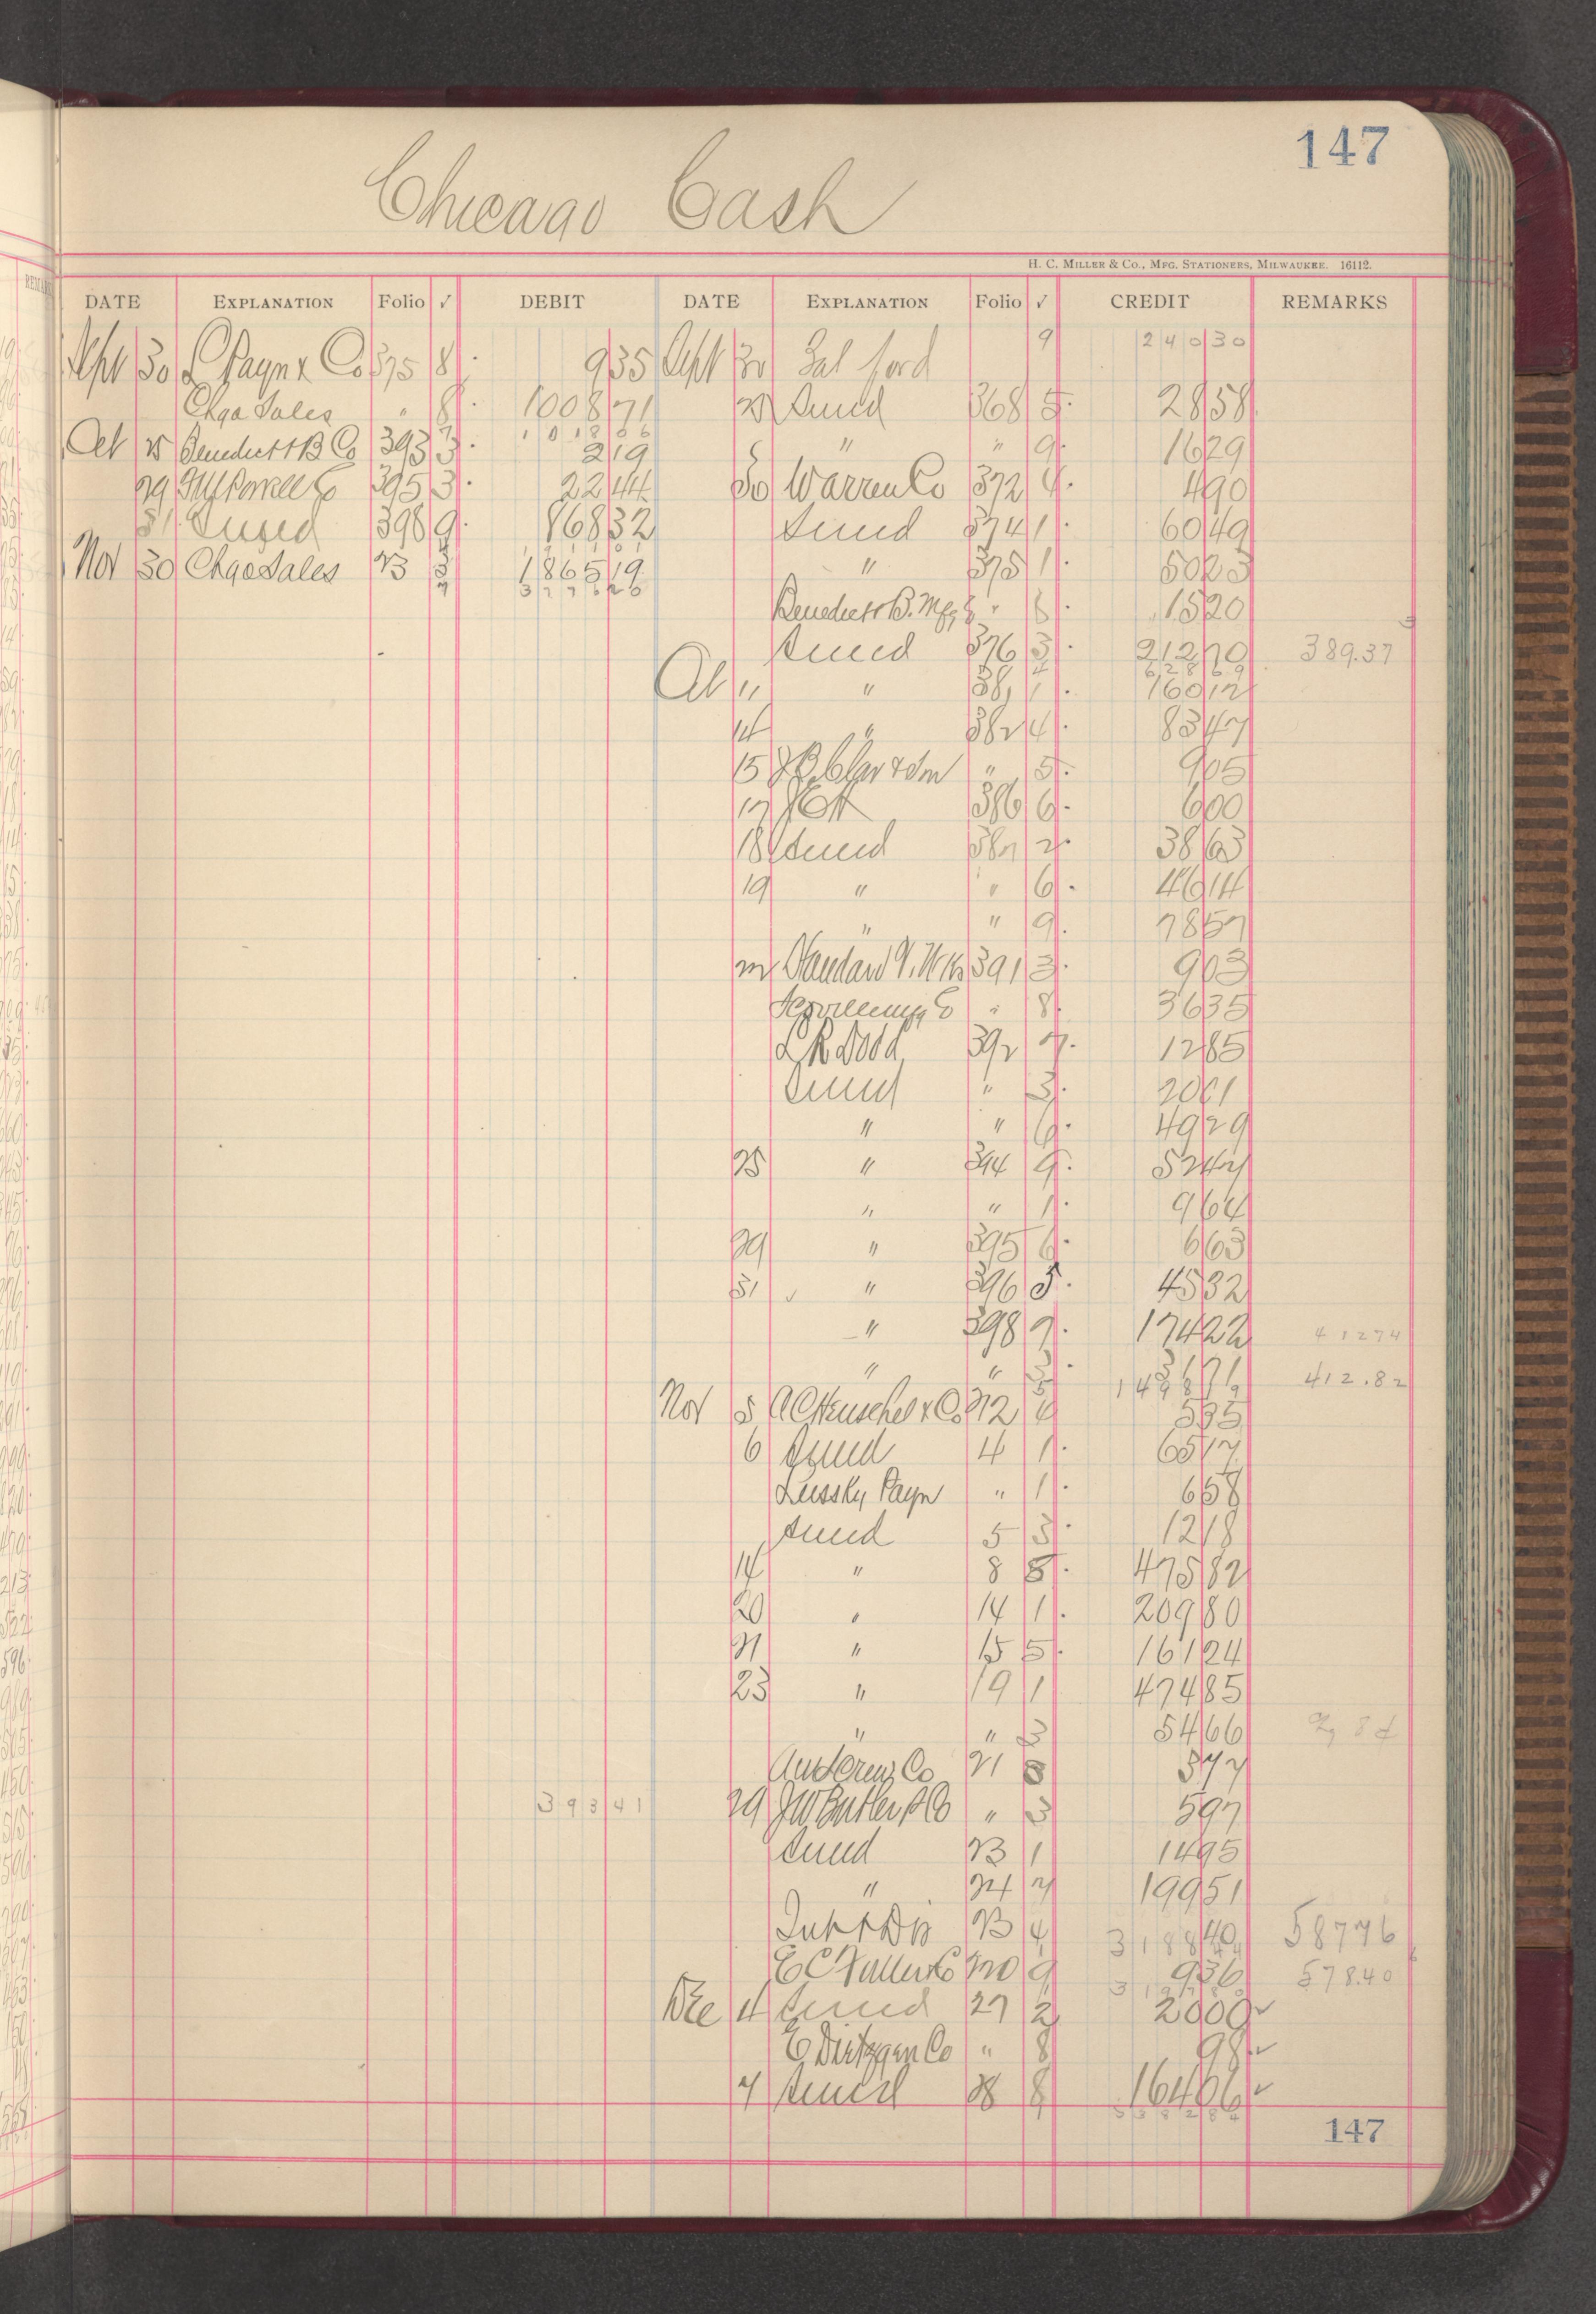 147
Chicago Cash
H. C. MILLER & CO., MFG. STATIONERS, MILWAUKEE. 16112.
DATE EXPLANATION Folio ✓ DEBIT DATE EXPLANATION Folio ✓ CREDIT REMARKS
Sept 30 L Payn & Co 375 8 9 35 Sept 30 Bal ford 9 240 30
Chgo Sales " 8 1008 71 Sund 368 5 28 58
1018 06
Oct 25 Benedict & B Co 393 3 2 19 " " 9 16 29
29 Co 395 3 22 44 30 Warren Co 372 4 4 90
31 Sund 398 9 868 32 Sund 374 1 60 49
Nov 30 Chgo Sales 23 1865 19 " 375 1 50 23
3776 20 Benedict & B. Mfg Co " 8 15 20
Sund 376 3 212 70 389.37
628 69
Oct 11 " 381 1 160 12
14 " 382 4 83 47
15 " 5 9 05
17 386 6 6 00
18 Sund 387 2 38 63
19 " " 6 46 14
" " 9 78 57
22 Standard 391 3 9 03
Co " 8 36 35
L R Dodd 392 7 12 85
Sund " 3 20 61
" " 6 49 29
25 " 394 9 52 47
" " 1 9 64
29 " 395 6 6 63
31 " 396 5 45 32
" 398 9 174 22 412 74
" " 3 412.82
Nov 5 A C Henschel & Co 5 35
6 Sund 4 1 65 17
Lussky Payn " 1 6 58
Sund 5 3 12 18
14 " 8 8 475 82
20 " 14 1 209 80
21 " 15 5 161 24
23 " 19 1 474 85
" " 3 54 66
Co 21 8 3 77
393 41 29 J W Butler P Co " 3 5 97
Sund 23 1 14 95
" 24 7 199 51
Int & Dis 23 4 587 76
E C Fuller Co 20 9 9 36 578.40
Dec 4 Sund 27 2 20 00 ✓
E Dietzgen Co " 8 98 ✓
7 Sund 28 8 164 06 ✓
147